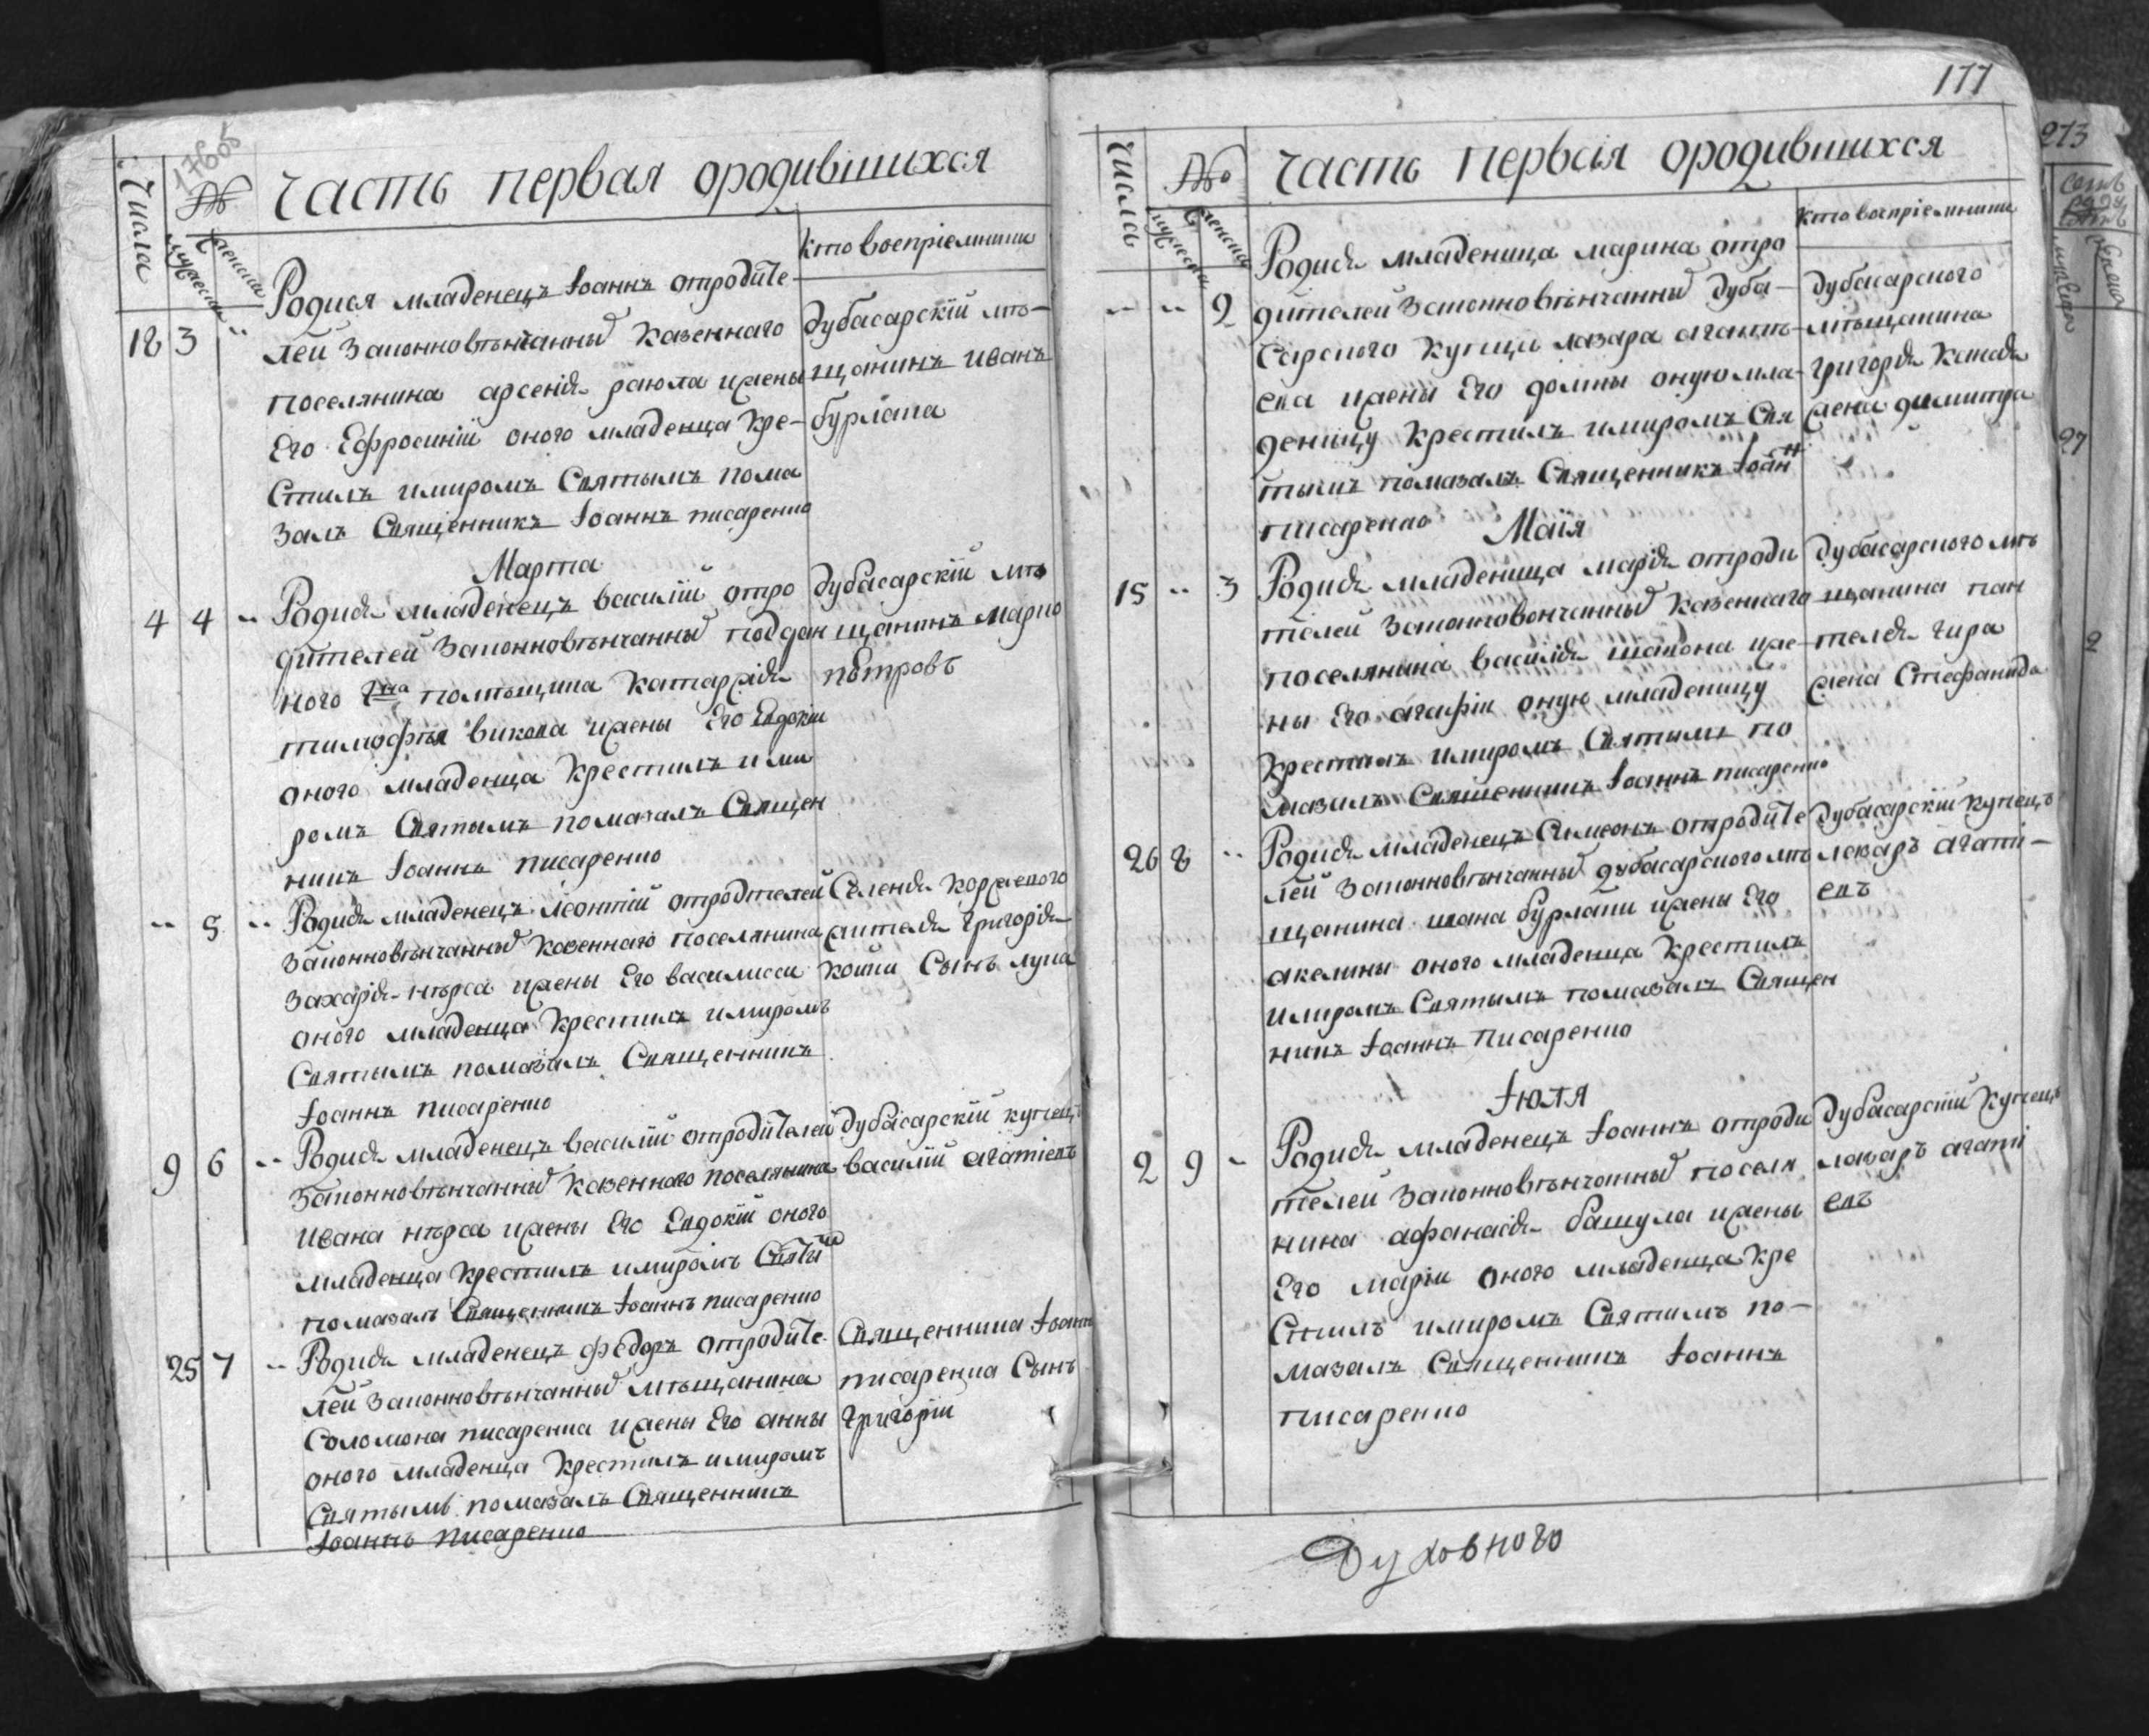 17665
Числа
№
Часть первая ородившихся
мужеска
женска
Кто воспріемники
18 3 --
Родися младенецъ Іоаннъ отродите-
лей Законновѣнчанныхъ казеннаго
поселянина арсенія раюла ижены
Его Ефросиніи оного младенца кре-
стилъ имиромъ Святымъ пома
залъ Священникъ Іоаннъ писаренко
дубасарскій мѣ-
щанинъ Иванъ
бурлака
Марта
4 4 --
Родися младенецъ василій отро
дителей Законновѣнчанныхъ поддан
ного помѣщика Катаржія
тимофѣя викова ижены Его Евдокіи
оного младенца крестилъ ими
ромъ Святымъ помазалъ Священ
никъ Іоаннъ писаренко
дубасарскій мѣ
щанинъ марко
петровъ
-- 5 --
Родися младенецъ леонтій отродителей
Законновѣнчанныхъ Казеннаго поселянина
Захарія нѣрса ижены Его василисси
оного младенца крестилъ имиромъ
Святымъ помазалъ Священникъ
Іоаннъ писаренко
Селенія коржевого
жителя григорія
Сынъ лука
9 6 --
Родися младенецъ василій отродителей
Законновѣнчанныхъ Казеннаго поселянина
Ивана нѣрса ижены Его Евдокіи оного
младенца крестилъ имиромъ Святымъ
помазалъ Священникъ Іоаннъ писаренко
дубасарскій купецъ
василій агапіевъ
25 7 --
Родися младенецъ федоръ отродите-
лей Законновѣнчанныхъ мѣщанина
Соломона писаренка ижены Его анны
оного младенца крестилъ имиромъ
Святымъ помазалъ Священникъ
Іоаннъ писаренко
Священника Іоанна
писаренка Сынъ
григорій
177
Числа
№
Часть первая ородившихся
мужеска
женска
Кто воспріемники
-- -- 2
Родися младеница марина отро
дителей Законновѣнчанныхъ дуба-
сарского купца лазара агапі-
ева ижены Его домны оную мла-
деницу крестилъ имиромъ Свя
тымъ помазалъ Священникъ Іоанн
писаренко
дубасарского
мѣщанина
григорія
жена димитра
Маія
15 -- 3
Родися младеница марія отроди
телей Законновѣнчанныхъ казеннаго
поселянина василія ижe-
ны Его агафіи оную младеницу
крестилъ имиромъ Святымъ по
мазалъ Священникъ Іоаннъ писаренко
дубасарского мѣ
щанина пан
телея
жена Стефанида
26 8 --
Родися младенецъ Симеонъ отродите
лей Законновѣнчанныхъ дубасарского мѣ
щанина ивана бурлаки ижены Его
акелины оного младенца крестилъ
имиромъ Святымъ помазалъ Священ
никъ Іоаннъ писаренко
дубасарскій купецъ
лазаръ агапі-
евъ
Іюля
2 9 --
Родися младенецъ Іоаннъ отроди
телей Законновѣнчанныхъ поселя
нина афанасія башула ижены
Его маріи оного младенца кре
стилъ имиромъ Святымъ по-
мазалъ Священникъ Іоаннъ
писаренко
дубасарскій купецъ
лазаръ агапі
евъ
Духовного
273
27
2